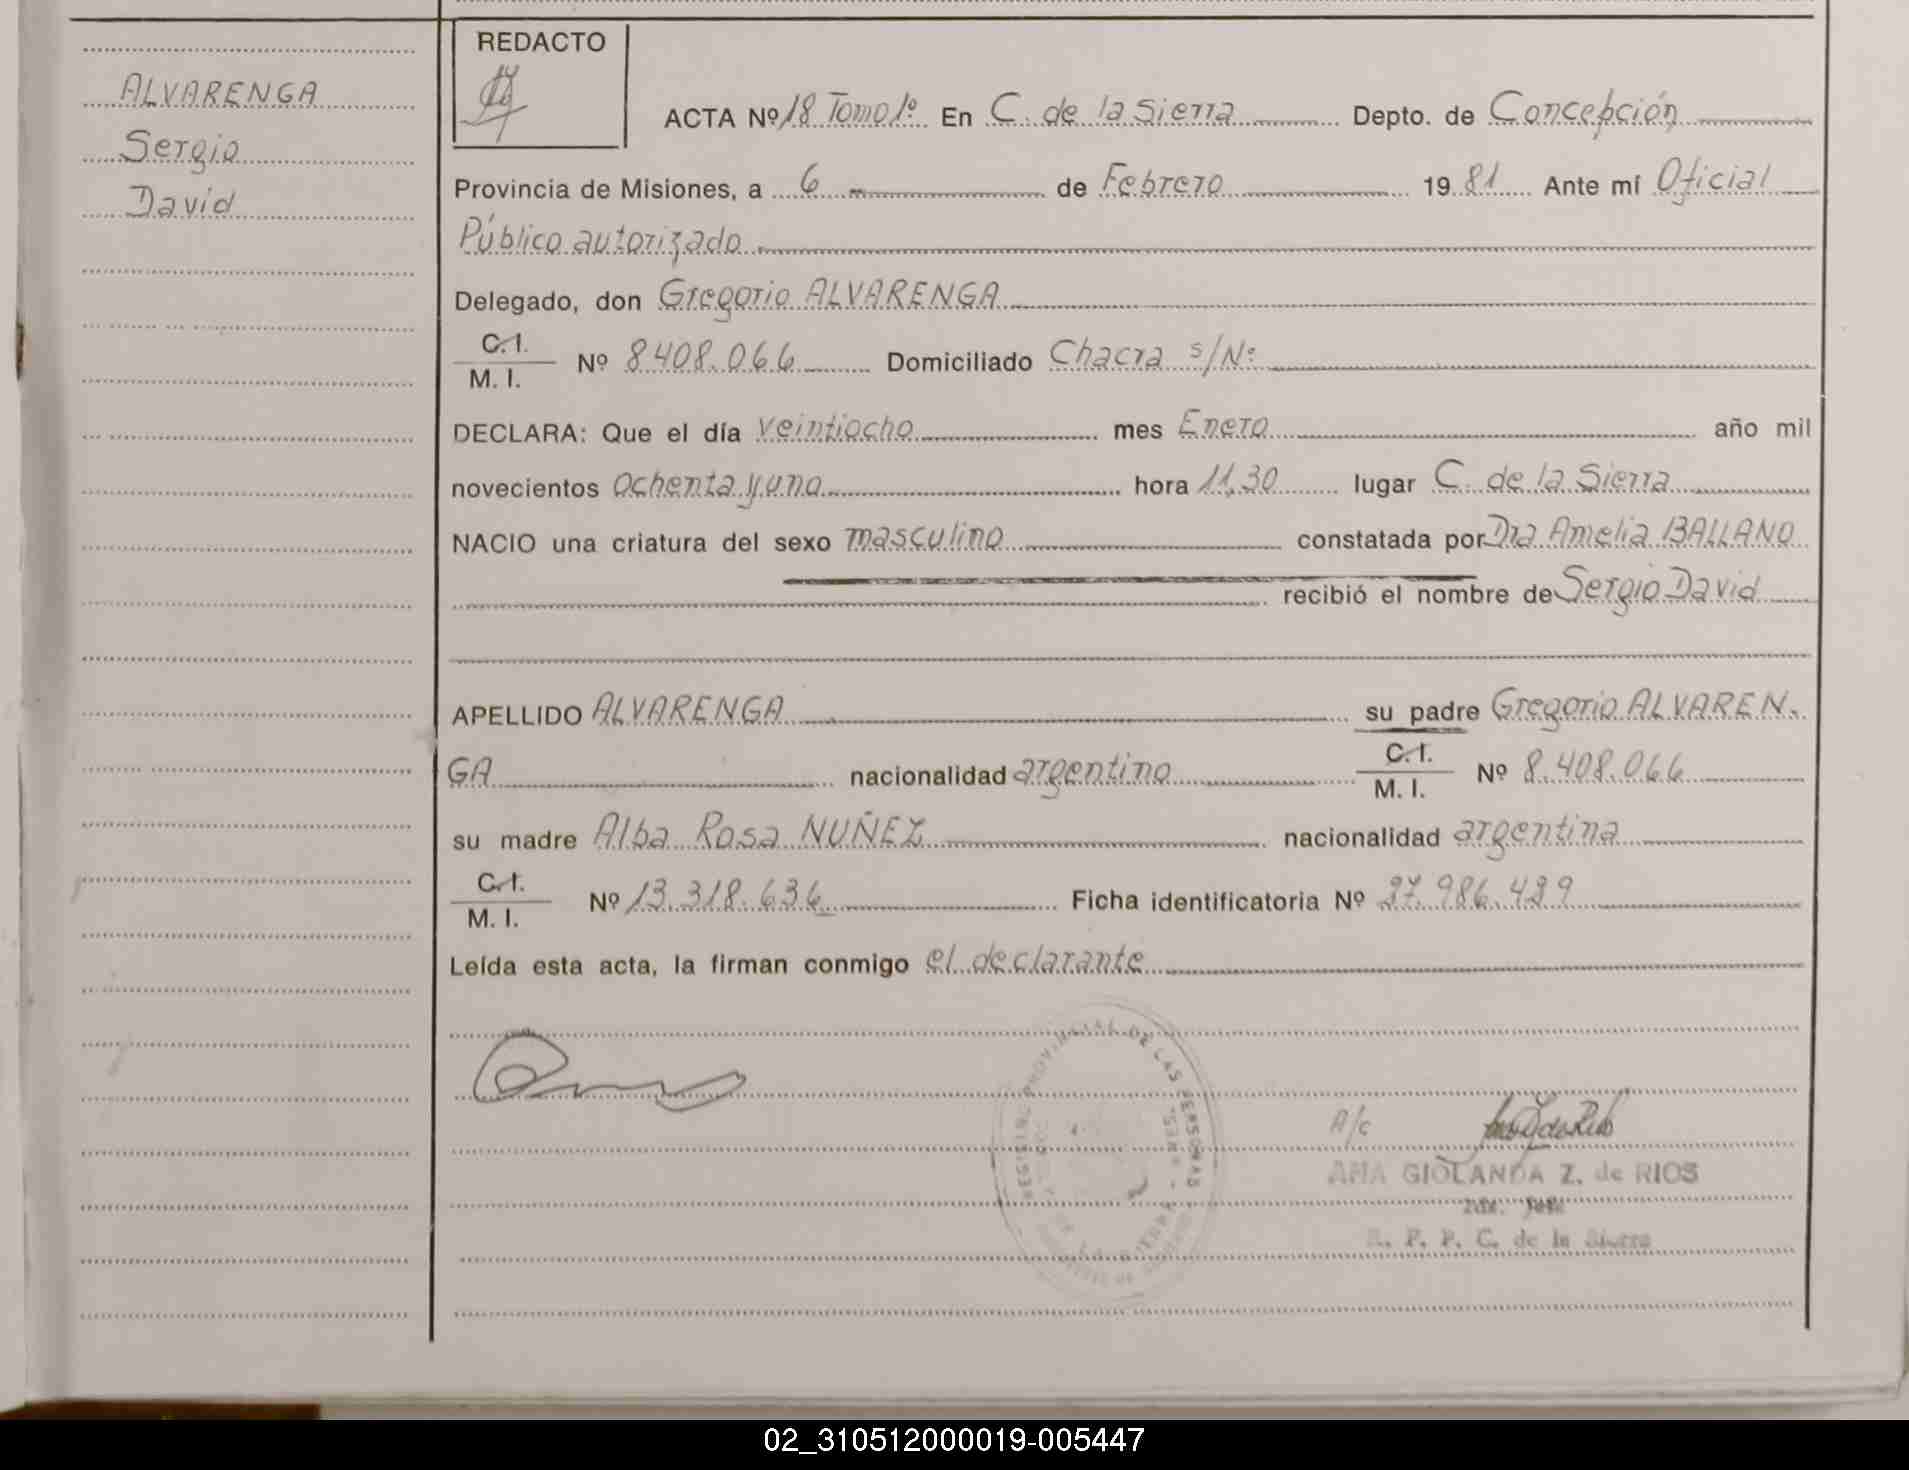 REDACTO
ALVARENGA
Sergio
David
ACTA Nº 18 Tomo 1º En C. de la Sierra Depto. de Concepción
Provincia de Misiones, a 6 de Febrero 19 81 Ante mí Oficial
Público autorizado
Delegado, don Gregorio ALVARENGA
C.I.
M. I. Nº 8408.066 Domiciliado Chacra s/Nº
DECLARA: Que el día veintiocho mes Enero año mil
novecientos ochenta y uno hora 11,30 lugar C. de la Sierra
NACIO una criatura del sexo masculino constatada por Dra Amelia BALLANO
recibió el nombre de Sergio David
APELLIDO ALVARENGA su padre Gregorio ALVAREN.
GA nacionalidad argentino C.I. M. I. Nº 8.408.066
su madre Alba Rosa NUÑEZ nacionalidad argentina
C.I.
M. I. Nº 13.318.636 Ficha identificatoria Nº 27.986.489
Leída esta acta, la firman conmigo el declarante
REGISTRO PROVINCIAL DE LAS PERSONAS
A/c
ANA GIOLANDA Z. de RIOS
R. P. P. C. de la Sierra
02_310512000019-005447